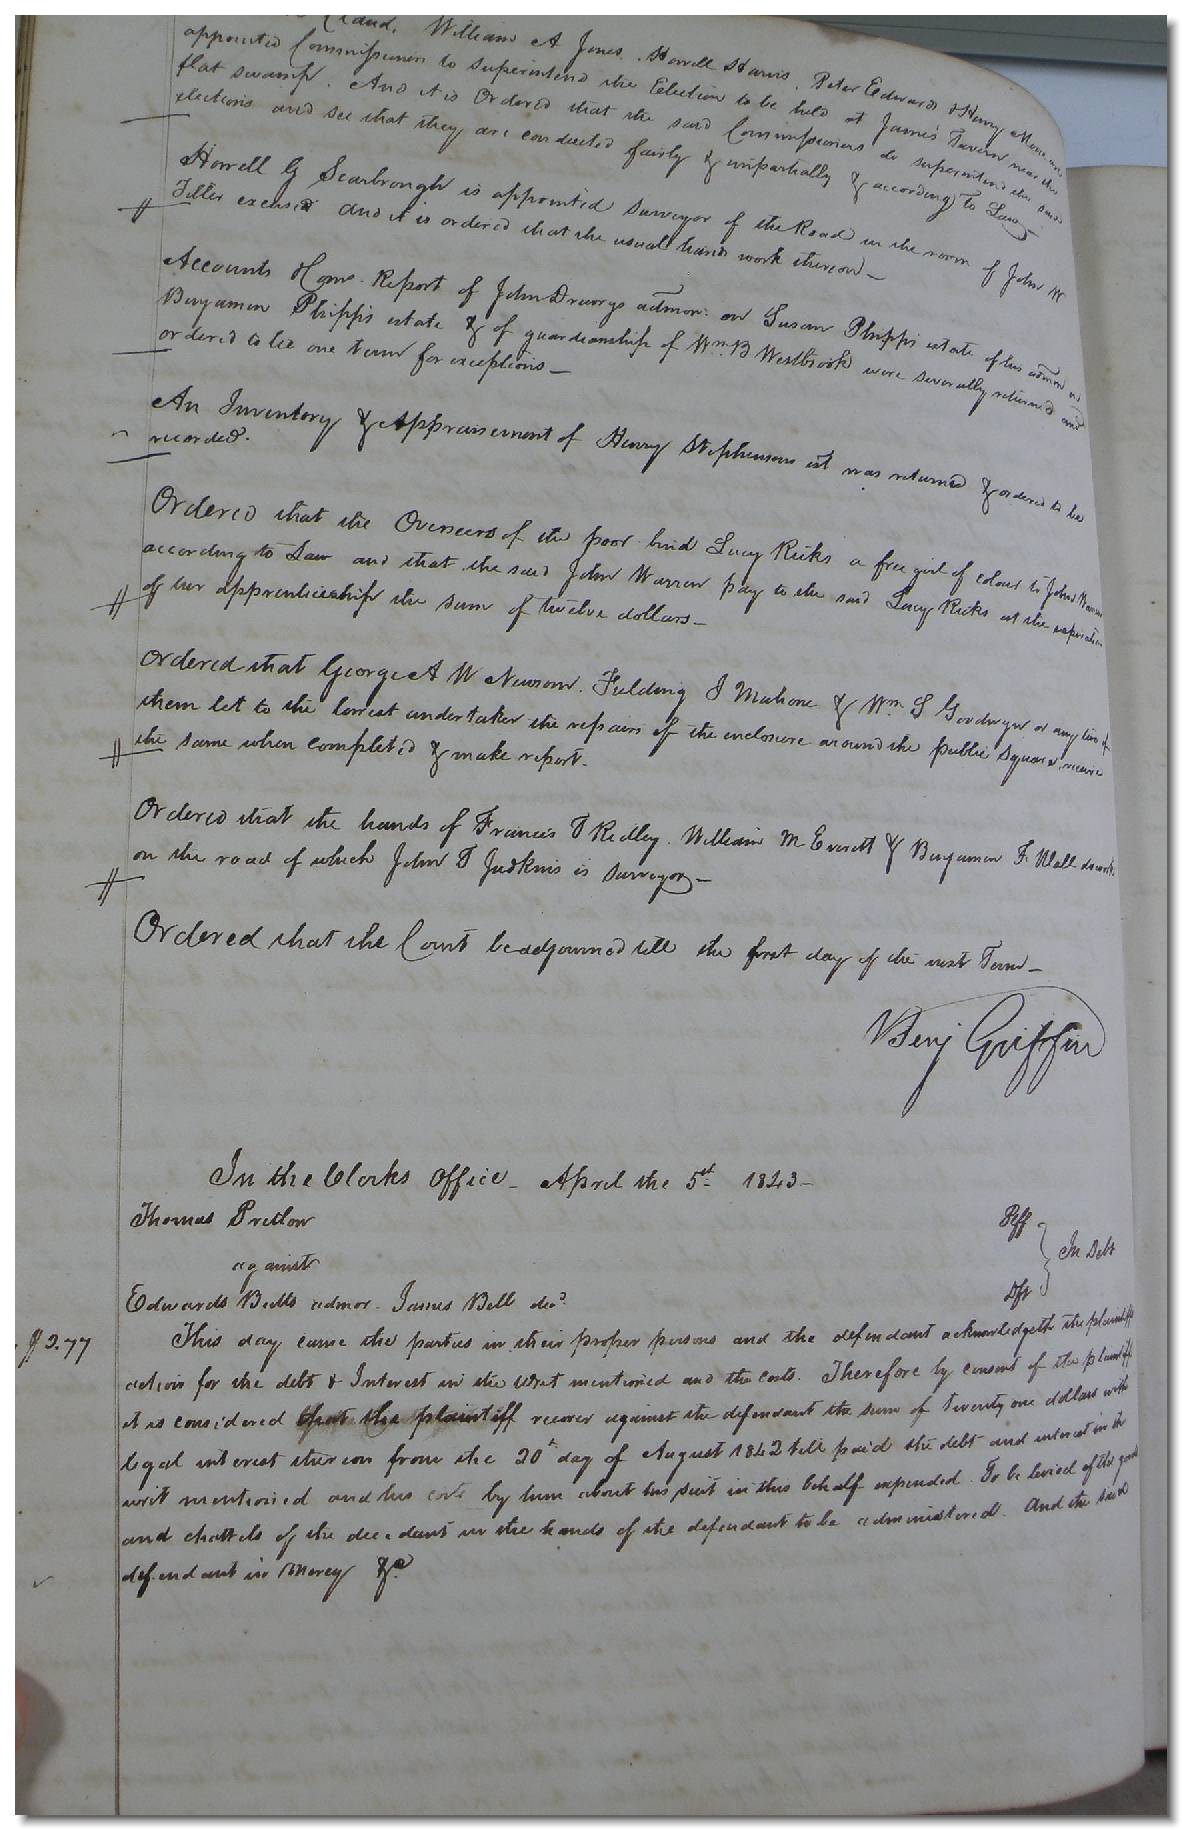 Land, William A Jones, Howell Harris, Peter Edwards & Henry
appointed Commissioners to superintend the Election to be held at James' Tavern near the
flat swamp. And it is Ordered that the said Commissioners do superintend the said
elections and see that they are conducted fairly & impartially & according to Law
Howell G Scarbrough is appointed surveyor of the Road in the room of John W
Feller excused and it is ordered that the usual hands work thereon—
Accounts Home. Report of John Drewrys admor. on Susan Phipps estate of his admon on
Benjamin Phipps estate & of guardianship of Wm. B Westbrook were severally returned and
ordered to lie one term for exceptions—
An Inventory & Appraisement of Henry Stephensons est was returned & ordered to be
recorded.
Ordered that the Overseers of the poor bind Lucy Ricks a free girl of colour to John Warren
according to Law and that the said John Warren pay to the said Lucy Ricks at the expiration
of her apprenticeship the sum of twelve dollars—
Ordered that George A W Newsom. Fielding J Mahone & Wm. S Goodwyn or any two of
them let to the lowest undertaker the repairs of the enclosure around the public square receive
the same when completed & make report.
Ordered that the hands of Francis T Ridley. William M Everett & Benjamin F. Wall do work
on the road of which John T Judkins is surveyor—
Ordered that the Court be adjourned till the first day of the next Term—
Benj Griffin
In the Clerks Office— April the 5th 1843—
Thomas Pretlow Plff
against In Debt
Edwards Butts admor. James Bell decd. Dft
$3.77 This day came the parties in their proper persons and the defendant acknowledgeth the plaintiffs
action for the debt & Interest in the Writ mentioned and the costs. Therefore by consent of the plaintiff
it is considered that the plaintiff recover against the defendant the sum of twenty one dollars with
legal interest thereon from the 20th day of August 1842 till paid the debt and interest in the
writ mentioned and his costs by him about his suit in this behalf expended. To be levied of the goods
and chattels of the decedent in the hands of the defendant to be administered. And the said
defendant in Mercy &c.